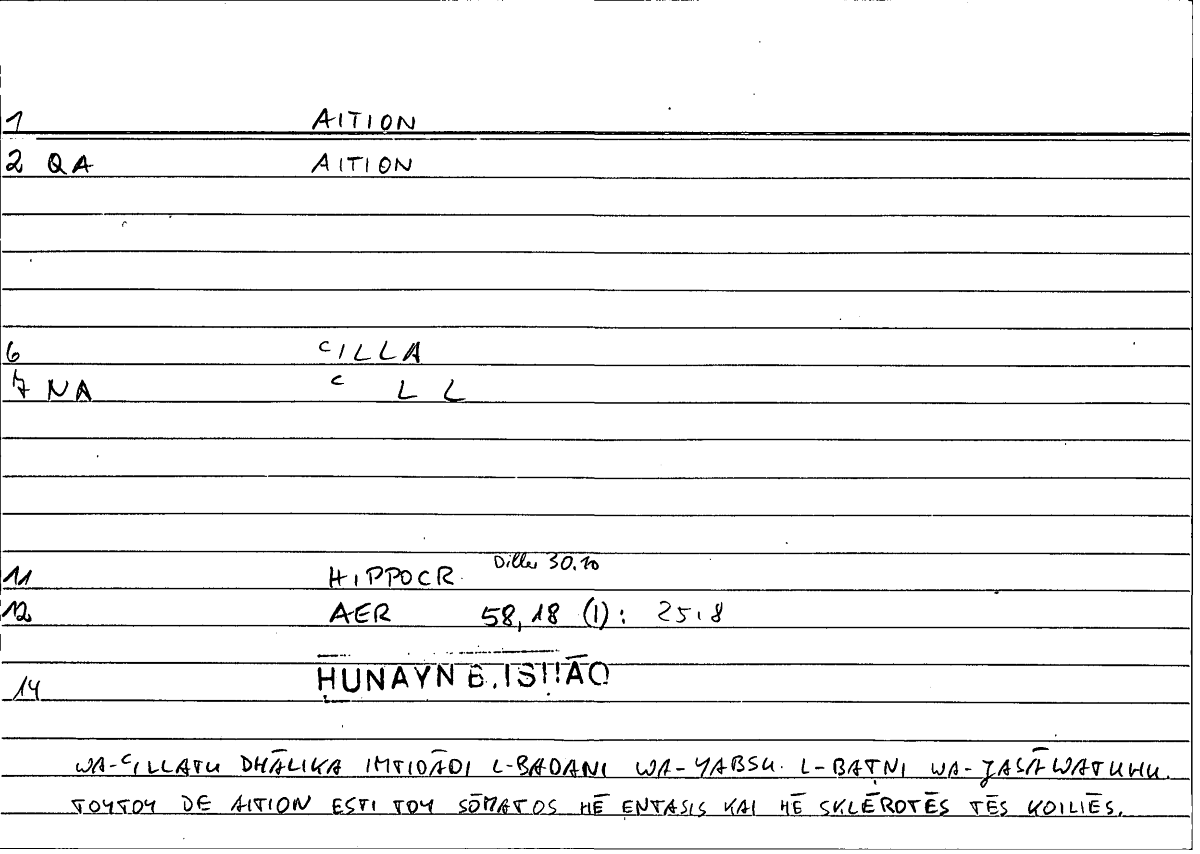 1 AITION
2 QA AITION
6 ᶜILLA
7 NA ᶜ L L
11 HIPPOCR. Diller 30.10
12 AER 58,18 (1): 25,8
14 ḤUNAYN B. ISḤĀQ
WA-ᶜILLATU DHĀLIKA IMTIDĀDI L-BADANI WA-YABSU. L-BAṬNI WA-JASĀWATUHU.
TOYTOY DE AITION ESTI TOY SŌMATOS HĒ ENTASIS KAI HĒ SKLĒROTĒS TĒS KOILIĒS.